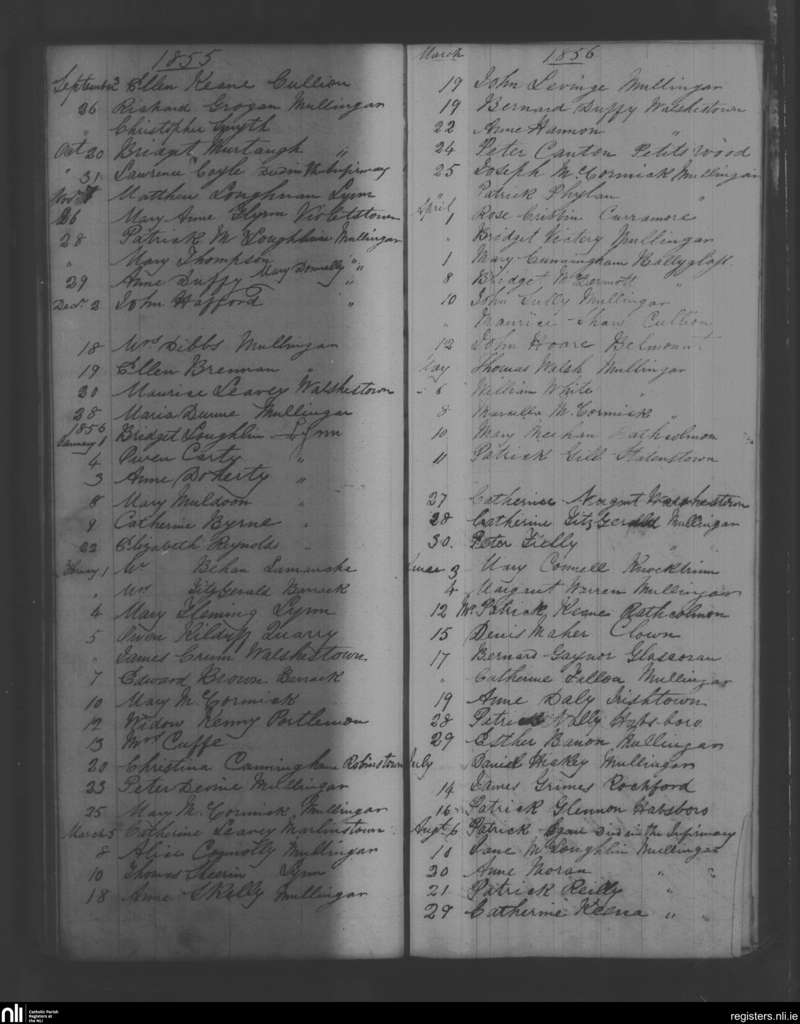 1855
September 3 Ellen Keane Cullion
26 Richard Grogan Mullingar
" Christopher Smyth
Oct 20 Bridget Murtaugh "
" 31 Lawrence Coyle Died in the Infirmary
Novr 7 Matthew Loughman Lynn
26 Mary Anne Flynn Violetstown
28 Patrick McLoughlin Mullingar
" Mary Thompson "
29 Anne Duffy Mary Donnelly " "
Decr 2 John Hafford "
18 Mrs Dibbs Mullingar
19 Ellen Brennan "
20 Maurice Leavey Walshestown
28 Maria Dunne Mullingar
1856
January 1 Bridget Loughlin Lynn
4 Owen Carty "
3 Anne Doherty "
8 Mary Muldoon "
9 Catherine Byrne "
22 Elizabeth Reynolds "
Febuary 1 Mr Behan
" Mrs FitzGerald Barrack
4 Mary Fleming Lynn
5 Owen Kilduff Quarry
" James Crum Walshestown
7 Edward Brown Barrack
10 Mary McCormick
12 Widow Kenny Portlemon
13 Mrs Cuffe
20 Christina Cunningham Robinstown
23 Peter Devine Mullingar
25 Mary McCormick Mullingar
March 5 Catherine Leavey Marlinstown
8 Alice Connolly Mullingar
10 Thomas Lynn
18 Anne Skelly Mullingar
March 1856
19 John Levinge Mullingar
19 Bernard Duffy Walshestown
22 Anne Hannon "
24 Peter Canton Petitswood
25 Joseph McCormick Mullingar
" Patrick Phelan "
April 1 Rose Cristin Curramore
" Bridget Victery Mullingar
1 Mary Cunningham Ballyglass
8 Bridget McDermott "
10 John Tully Mullingar
" Maurice Shaw Cullion
12 John Hoare Belmount
May Thomas Walsh Mullingar
6 William White "
8 McCormick "
10 Mary Meehan Rathcolmon
11 Patrick Gill
27 Catherine Nugent Walshestown
28 Catherine FitzGerald Mullingar
30. Peter Fielly " "
June 3 Mary Connell Knockdrin
4 Margaret Warren Mullingar
12 Mr Patrick Keane Rathcolmon
15 Denis Maher Clown
17 Bernard Gaynor Glascoran
" Catherine Fallon Mullingar
19 Anne Daly Irishtown
28 Patrick Habsboro
29 Esther Banon Mullingar
July Daniel Hickey Mullingar
14 James Grimes Rockford
16 Patrick Glennon Habsboro
Augt 6 Patrick Died in the Infirmary
10 Jane McLoughlin Mullingar
20 Anne Moran " "
21 Patrick Reilly "
29 Catherine Keena " "
nli
Catholic Parish
Registers at
the NLI
registers.nli.ie